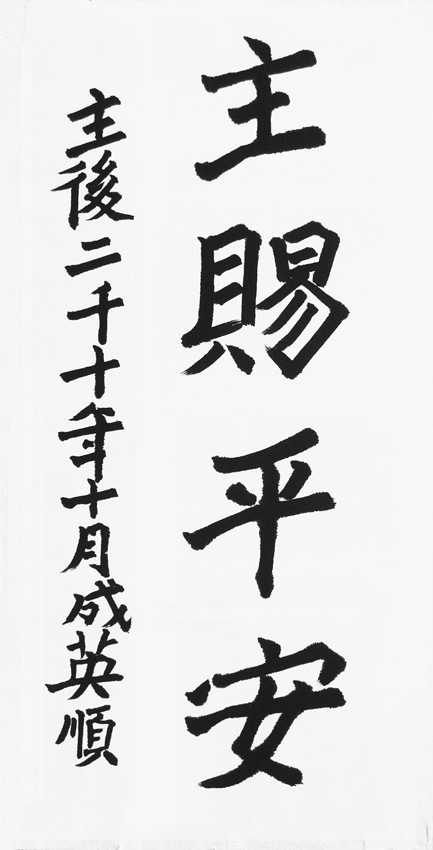 主賜平安
主後二千十年十月成英順